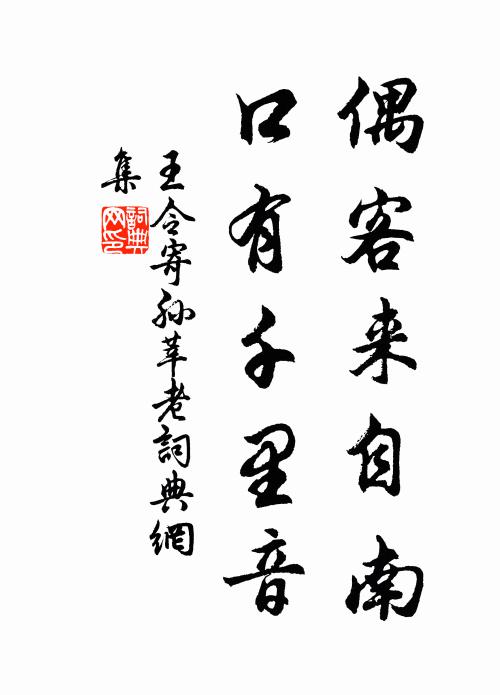 偶客来自南
口有千里音
王令寄孙莘老詞典網
集
詞典网印